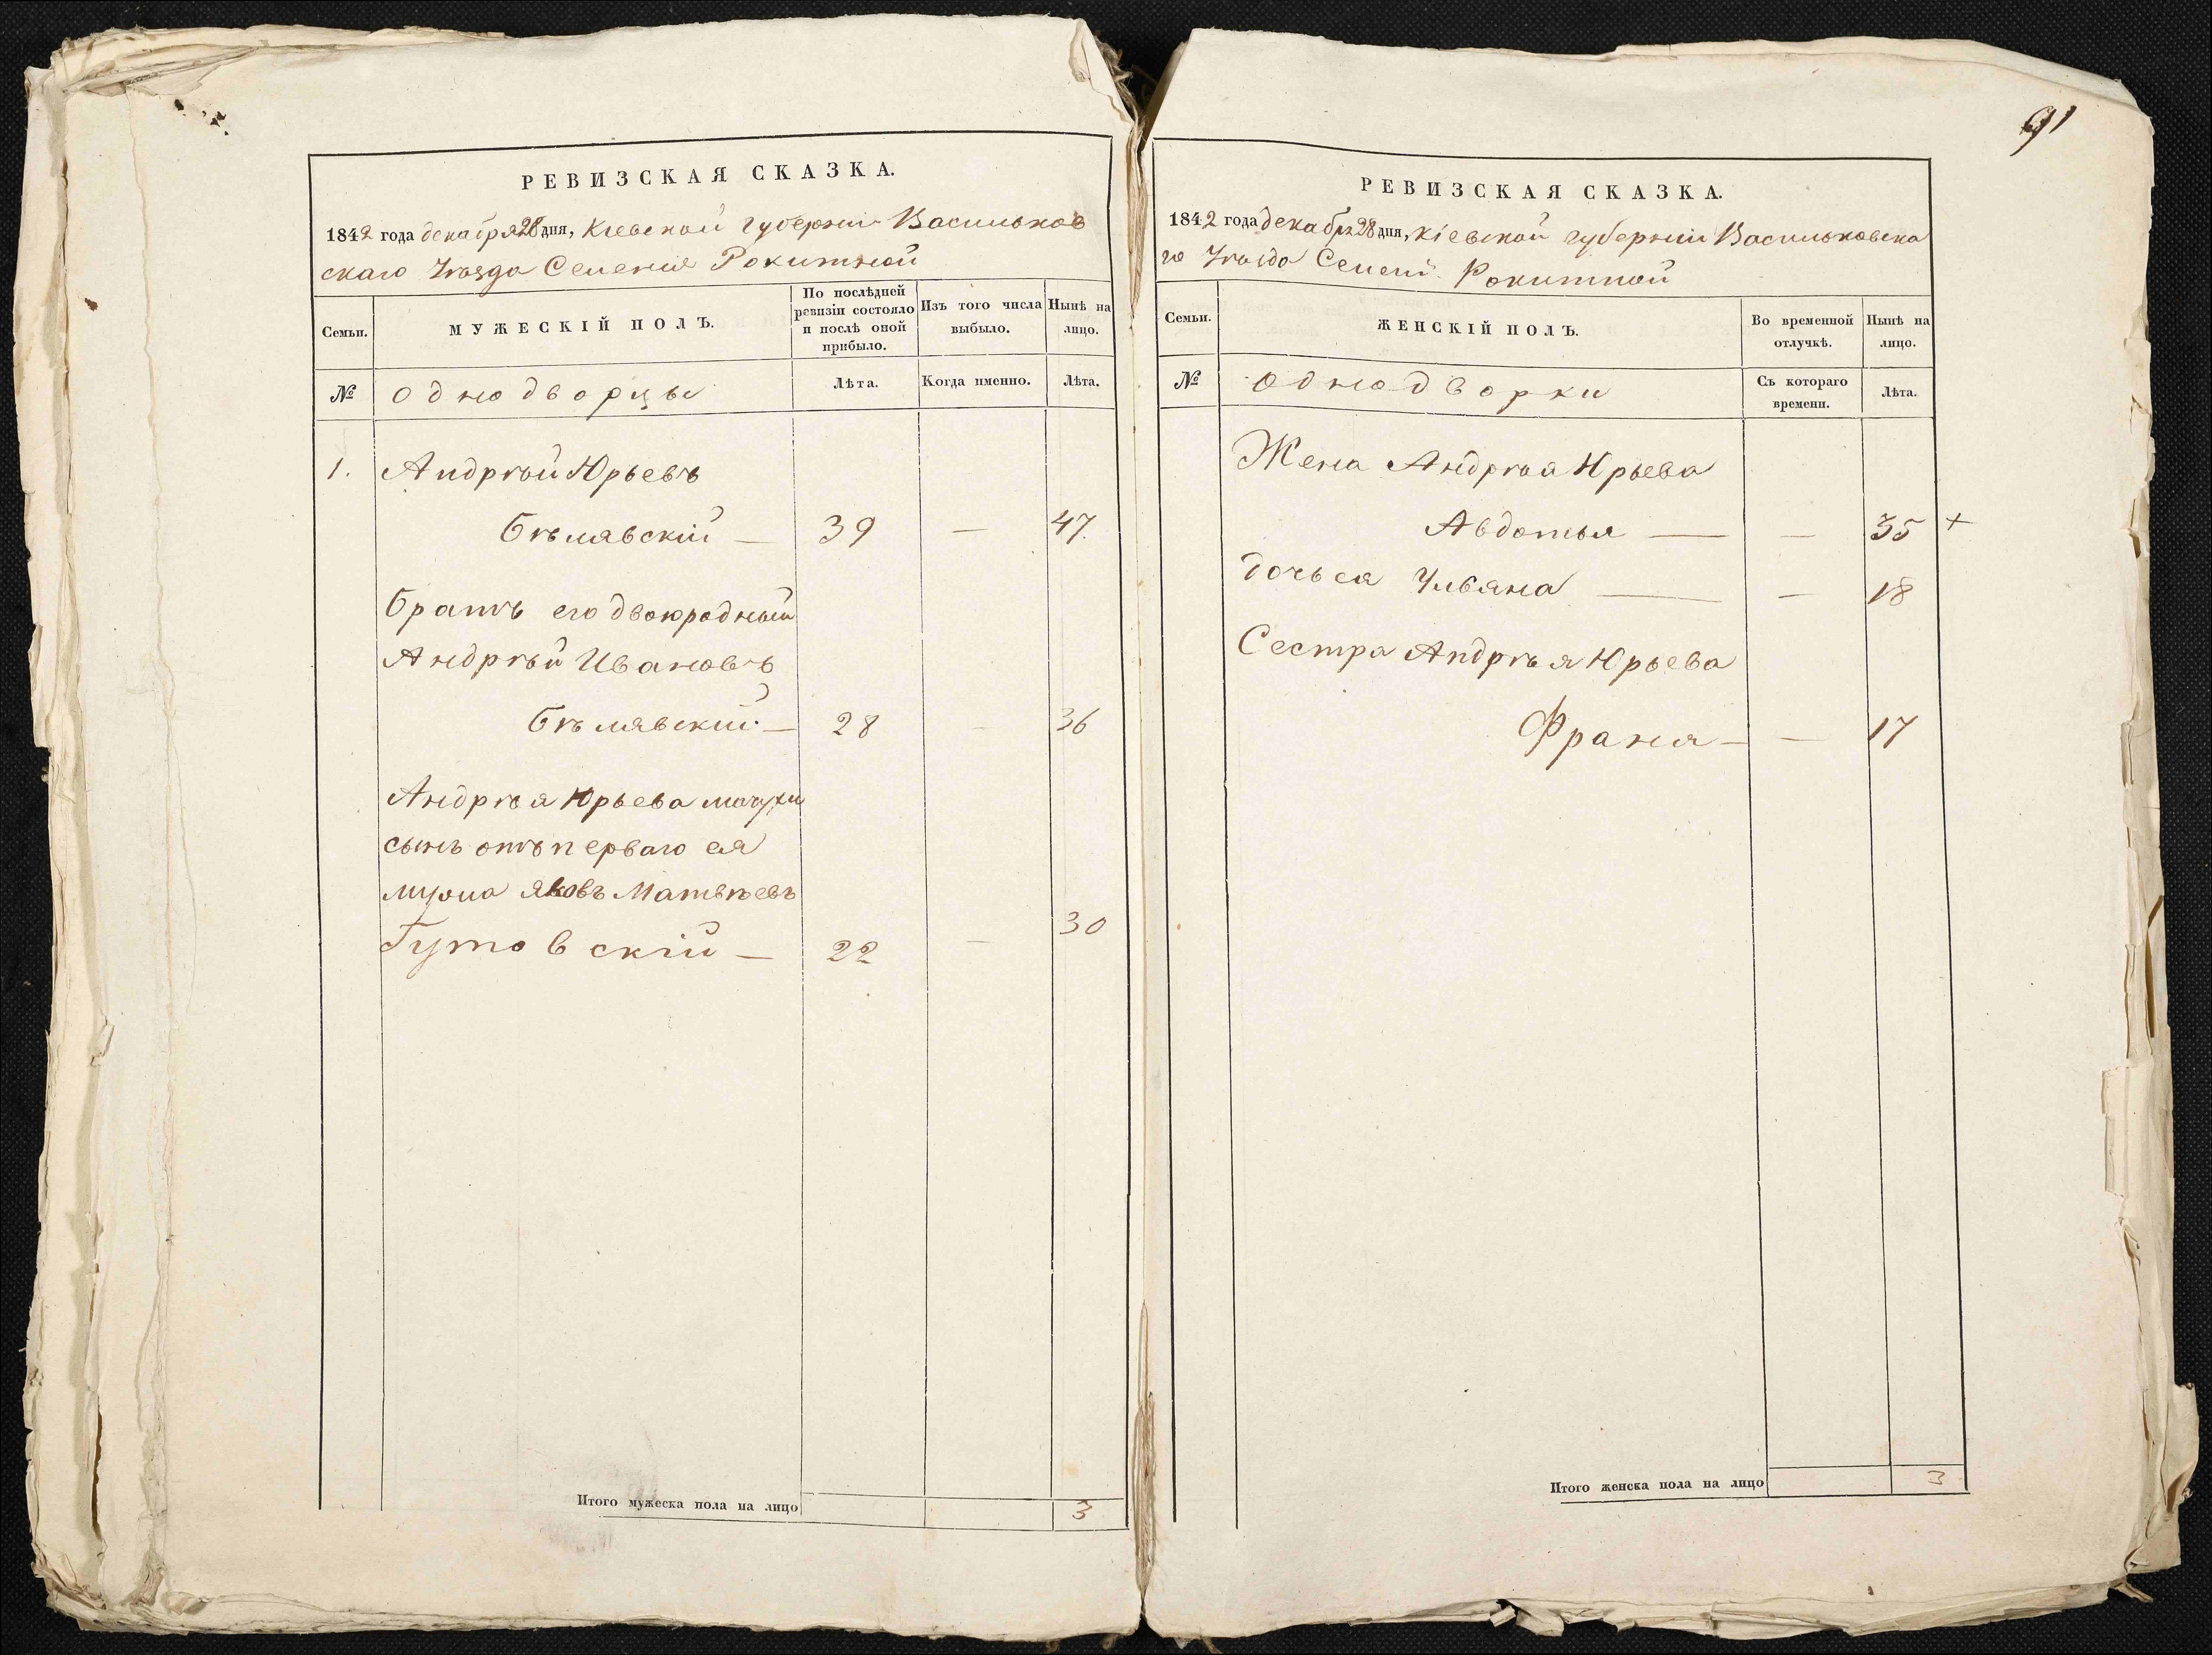 91
РЕВИЗСКАЯ СКАЗКА.
1842 года декабря 28 дня, Кіевской губерніи Васильков
скаго Уѣзда Селенія Рокитной
Семьи.
МУЖЕСКІЙ ПОЛЪ.
По послѣдней ревизіи состояло и послѣ оной прибыло.
Изъ того числа выбыло.
Нынѣ на лицо.
№ Однодворцы Лѣта. Когда именно. Лѣта.
1. Андрѣй Юрьевъ
Бѣлявскій — 39 — 47.
Братъ его двоюродный
Андрѣй Ивановъ
Бѣлявскій — 28 — 36
Андрѣя Юрьева мачухи
сынъ отъ перваго ея
мужа Яковъ Матвѣевъ
Гутовскій — 22 — 30
Итого мужеска пола на лицо 3
РЕВИЗСКАЯ СКАЗКА.
1842 года декабря 28 дня, Кіевской губерніи Васильковска
го Уѣзда Селеній Рокитной
Семьи.
ЖЕНСКІЙ ПОЛЪ.
Во временной отлучкѣ.
Нынѣ на лицо.
№ Однодворки Съ котораго времени. Лѣта.
Жена Андрѣя Юрьева
Авдотья — — 35 +
дочь ея Ульяна — — 18
Сестра Андрѣя Юрьева
Франя — — 17
Итого женска пола на лицо 3